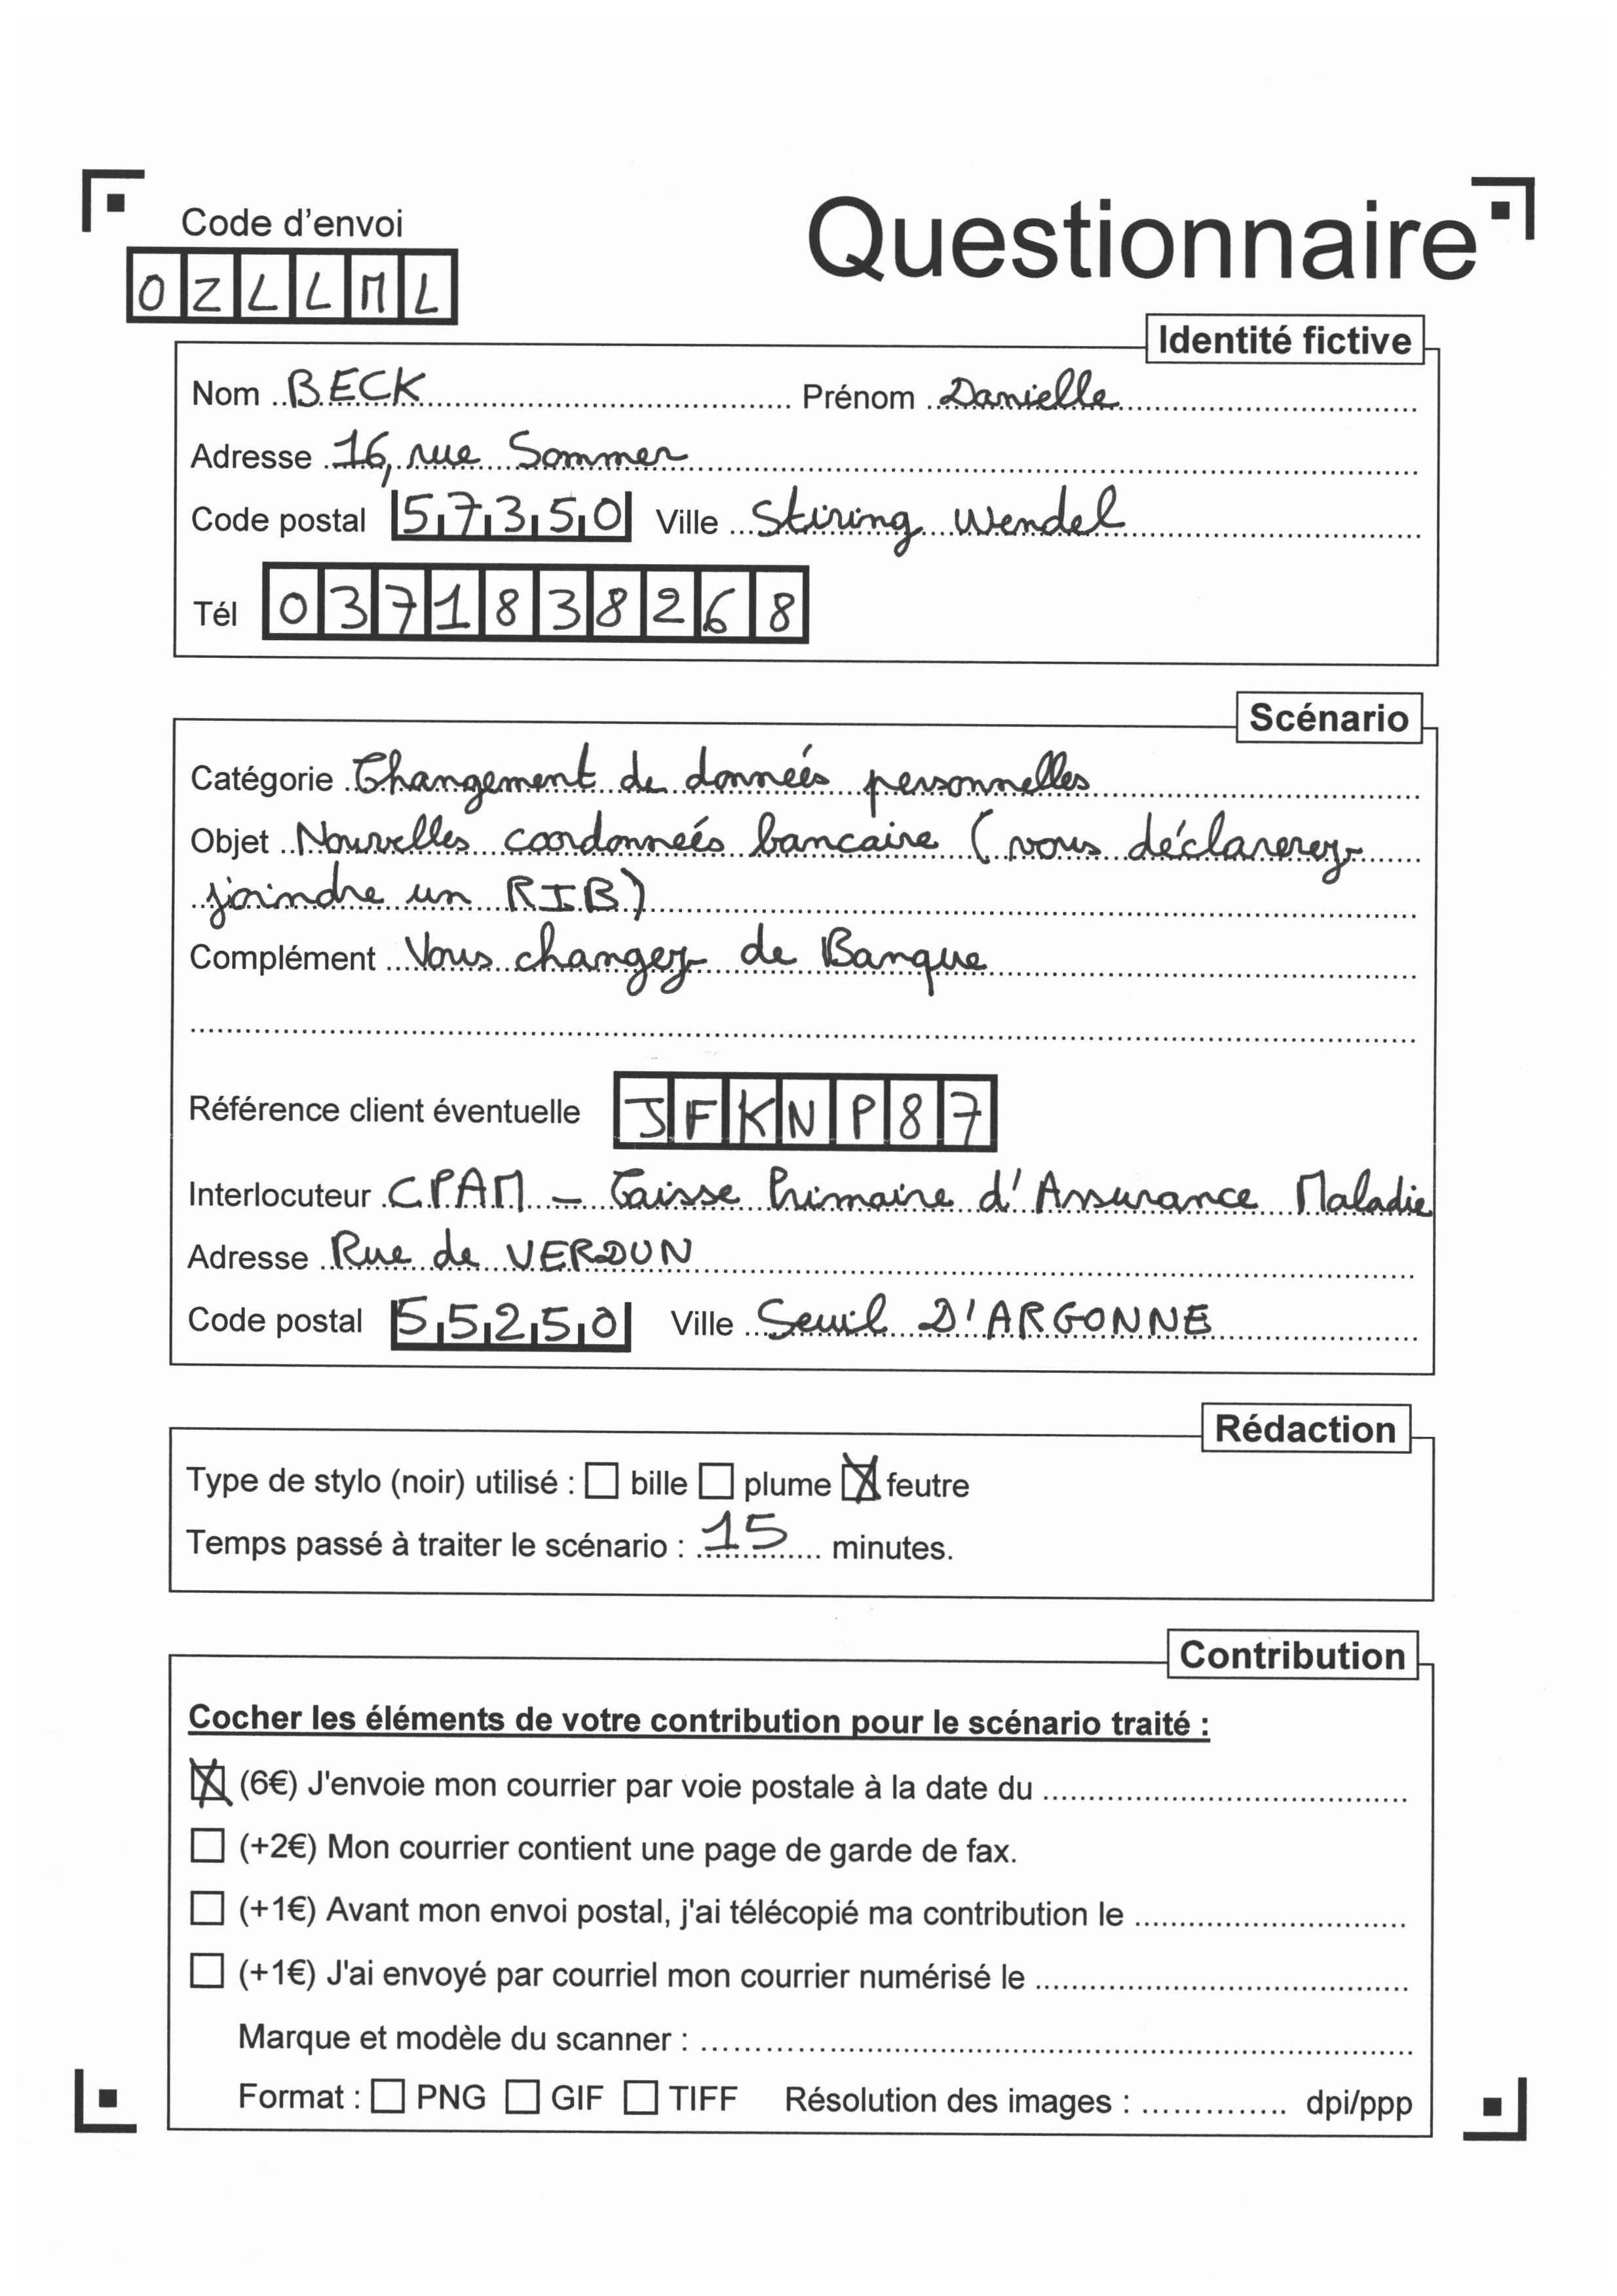 Code d'envoi
Questionnaire
OZLLML
Identité fictive
Nom BECK Prénom Danielle
Adresse 16, rue Sommer
Code postal 57350 Ville Stiring Wendel
Tél 0371838268
Scénario
Catégorie Changement de données personnelles
Objet Nouvelles coordonneés bancaire (vous déclarerez
joindre un RIB)
Complément Vous changez de Banque
Référence client éventuelle JFKNP87
Interlocuteur CPAM - Caisse Primaire d'Assurance Maladie
Adresse Rue de VERDUN
Code postal 55250 Ville Seuil D'ARGONNE
Rédaction
Type de stylo (noir) utilisé : ☐ bille ☐ plume ☒ feutre
Temps passé à traiter le scénario : 15 minutes.
Contribution
Cocher les éléments de votre contribution pour le scénario traité :
☒ (6€) J'envoie mon courrier par voie postale à la date du
☐ (+2€) Mon courrier contient une page de garde de fax.
☐ (+1€) Avant mon envoi postal, j'ai télécopié ma contribution le
☐ (+1€) J'ai envoyé par courriel mon courrier numérisé le
Marque et modèle du scanner :
Format : ☐ PNG ☐ GIF ☐ TIFF Résolution des images : dpi/ppp